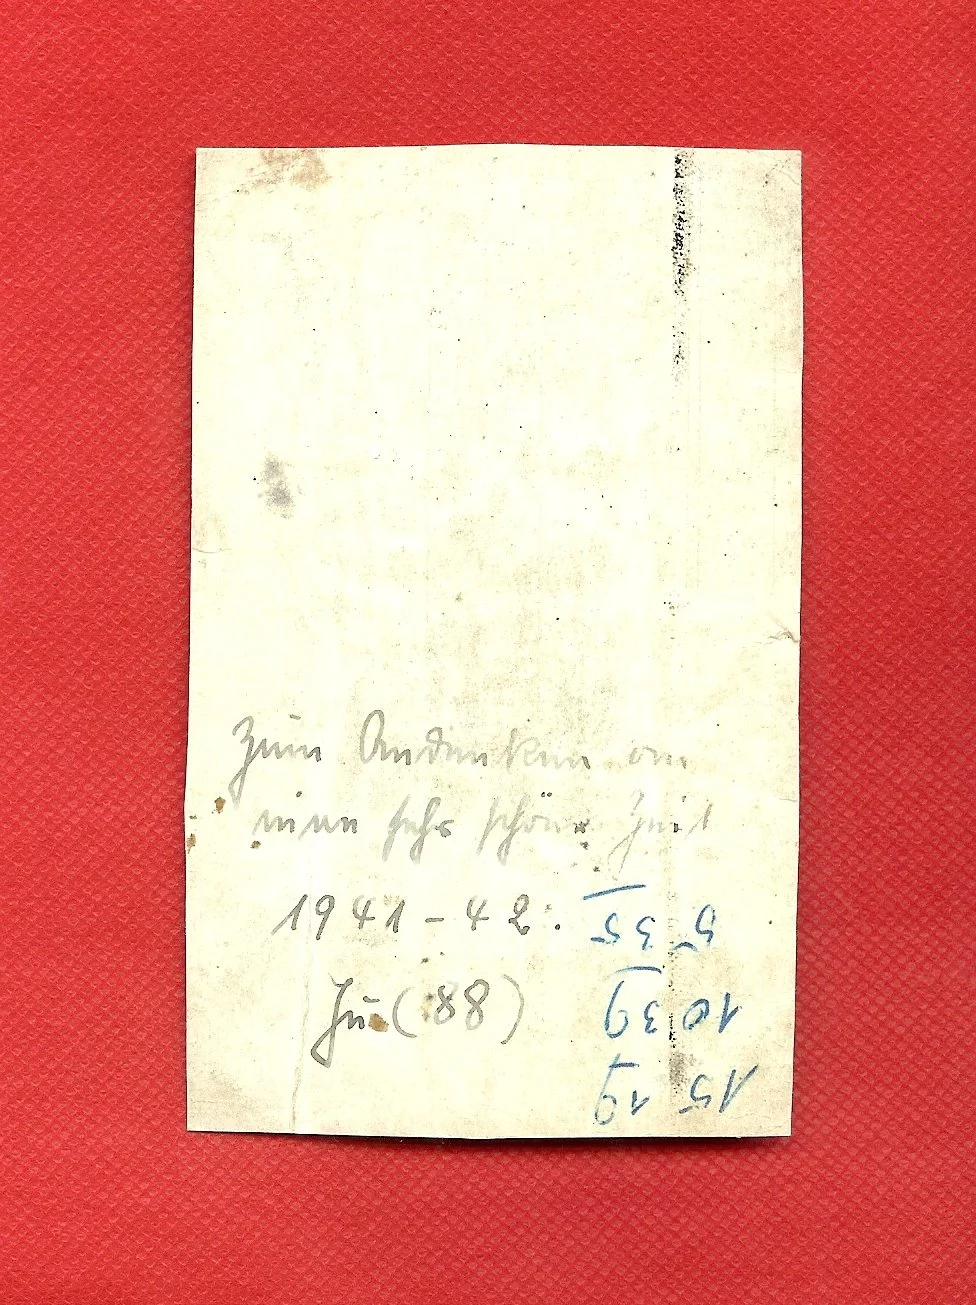 Zum Andenken an
eine sehr schöne Zeit
1941 – 42.
Ju (88)
15 19
10 39
5 35